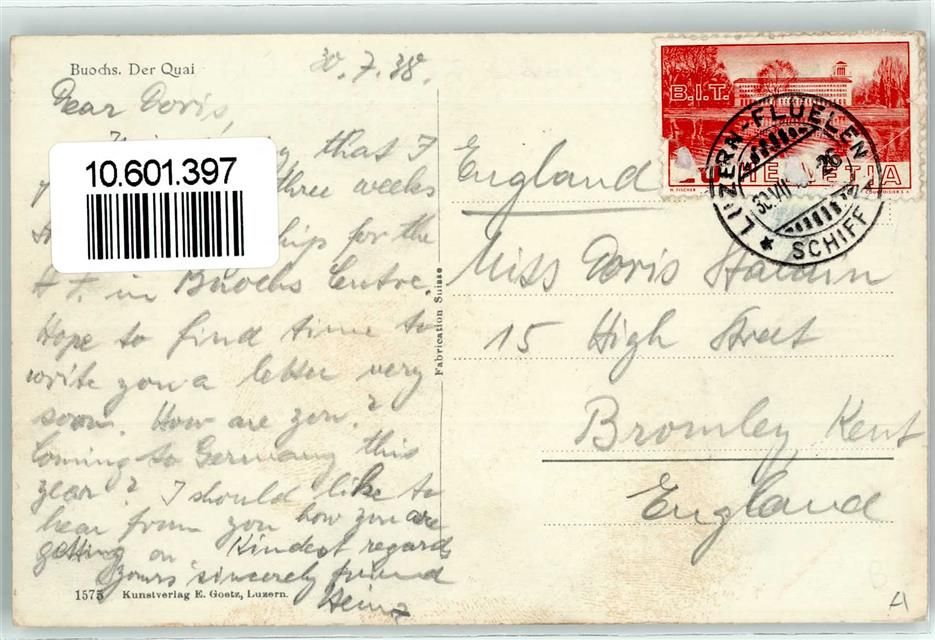 Buochs. Der Quai
30.7.38.
Dear Doris,
that I
three weeks
for the
in Buochs Centre.
Hope to find time to
write you a letter very
soon. How are you?
Coming to Germany this
year? I should like to
hear from you how you are
getting on Kindest regards
yours sincerely friend
Heinz
10.601.397
1575 Kunstverlag E. Goetz, Luzern.
Fabrication Suisse
B.I.T.
HELVETIA
LUZERN-FLÜELEN
SCHIFF
England
Miss Doris
15 High Street
Bromley Kent
England